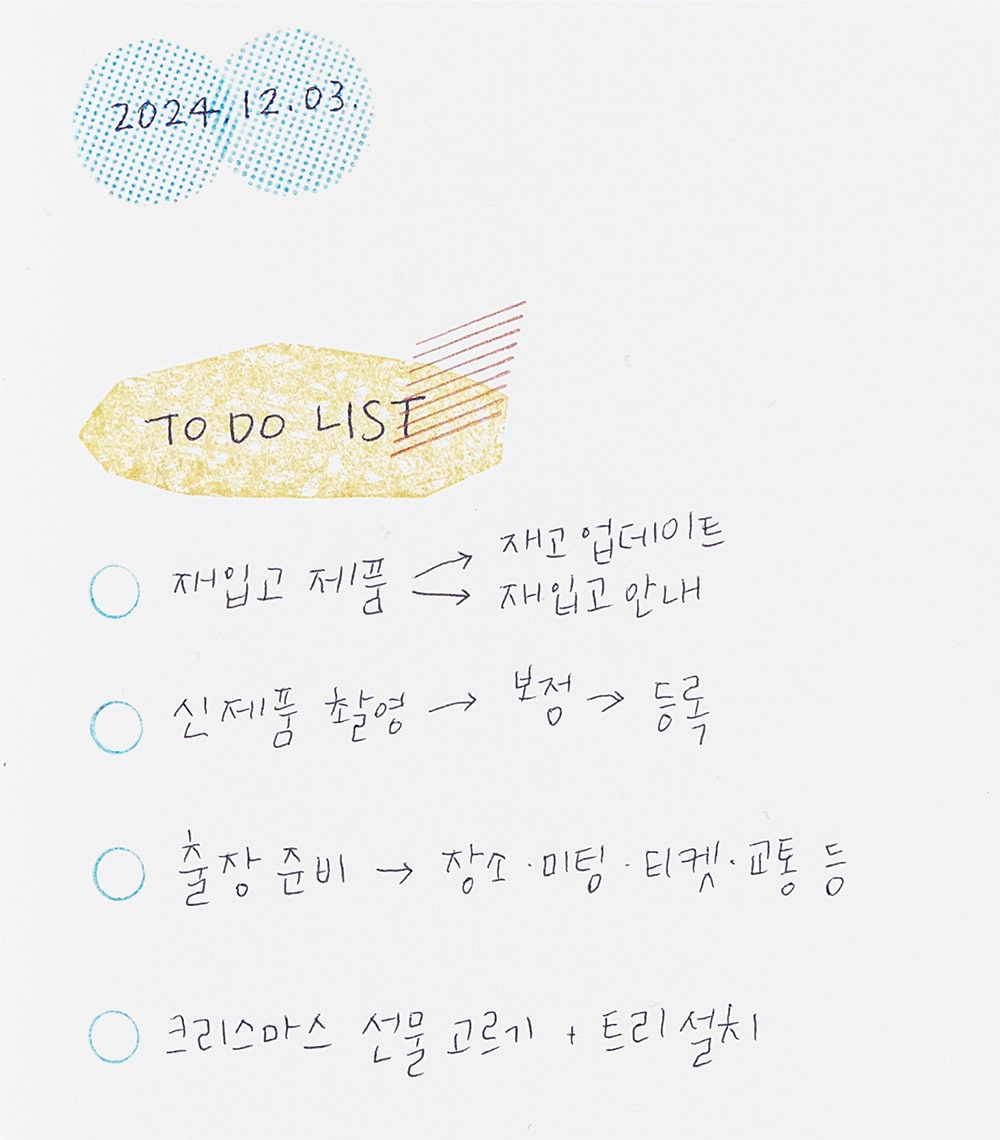 2024.12.03.
TO DO LIST
재입고 제품 → 재고 업데이트
→ 재입고 안내
신제품 촬영 → 보정 → 등록
출장 준비 → 장소·미팅·티켓·교통 등
크리스마스 선물 고르기 + 트리 설치